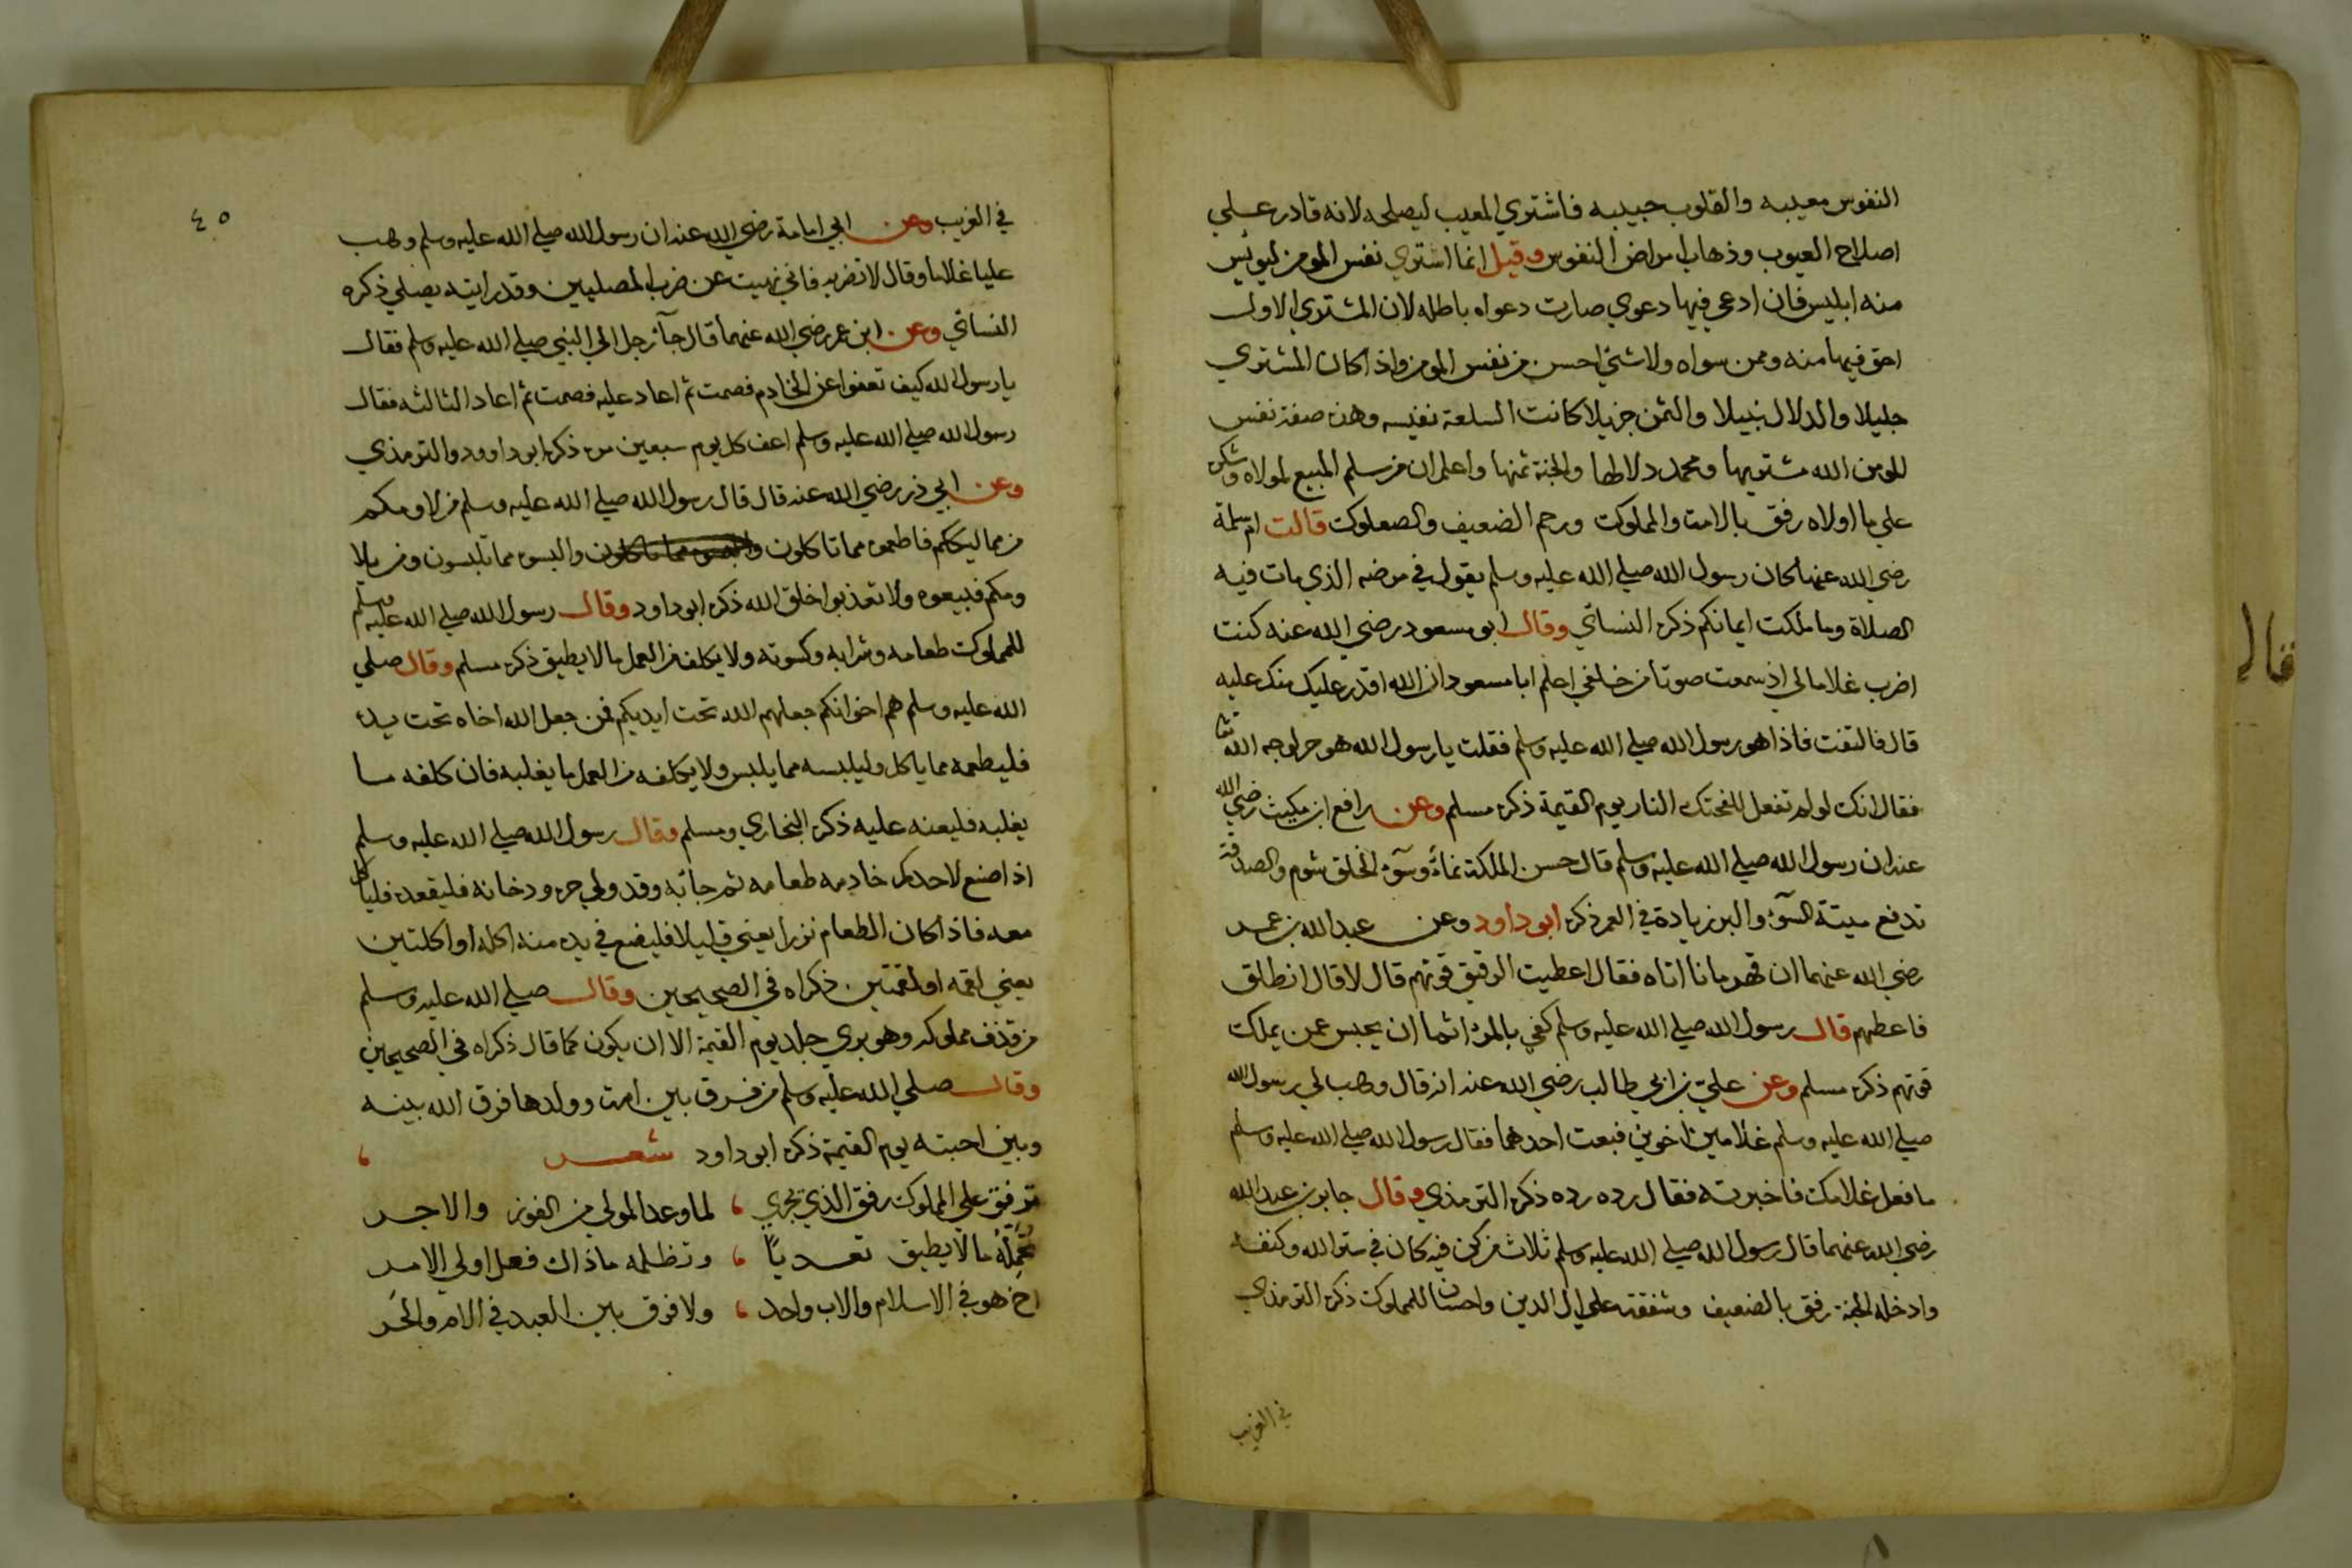 النفوس معيبه والقلوب حبيبه فاشتري المعيب ليصلحه لانه قادر علي
اصلاح العيوب وذهاب امراض النفوس وقيل انما اشتري نفس المومن ليويس
منه ابليس فان ادعي فيها دعوي صارت دعواه باطله لان المشتري الاول
احق فيها منه وممن سواه ولا شئ احسن من نفس المومن واذا كان المشتري
جليلا والدلال نبيلا والثمن جزيلا كانت السلعة نفيسه وهذه صفة نفس
المومن الله مشتريها ومحمد دلالها والجنة ثمنها واعلم ان من سلم المبيع لمولاه وشكره
علي ما اولاه رفق بالامة والمملوك ورحم الضعيف والصعلوك قالت ام سلمة
رضي الله عنها كان رسول الله صلي الله عليه وسلم يقول في مرضه الذي مات فيه
الصلاة وما ملكت ايمانكم ذكره النسائي وقال ابو مسعود رضي الله عنه كنت
اضرب غلاما لي اذ سمعت صوتا من خلفي اعلم ابا مسعود ان الله اقدر عليك منك عليه
قال فالتفت فاذا هو رسول الله صلي الله عليه وسلم فقلت يا رسول الله هو حر لوجه الله تعا
فقال انك لو لم تفعل للفحتك النار يوم القيمة ذكره مسلم وعن رافع ابن مكيث رضي الله
عنه ان رسول الله صلي الله عليه وسلم قال حسن الملكة نماء وسوء الخلق شوم والصدقة
تدفع ميتة السوء والبر زيادة في العمر ذكره ابو داود وعن عبد الله بن عمر
رضي الله عنهما ان قهرمانا اتاه فقال اعطيت الرقيق قوتهم قال لا قال انطلق
فاعطهم قال رسول الله صلي الله عليه وسلم كفي بالمرء اثما ان يحبس عمن يملك
قوتهم ذكره مسلم وعن علي بن ابي طالب رضي الله عنه انه قال وهب لي رسول الله
صلي الله عليه وسلم غلامين اخوين فبعت احدهما فقال رسول الله صلي الله عليه وسلم
ما فعل غلامك فاخبرته فقال رده رده ذكره الترمذي وقال جابر بن عبد الله
رضي الله عنهما قال رسول الله صلي الله عليه وسلم ثلاث من كن فيه كان في ستر الله وكنفه
وادخله الجنة رفق بالضعيف وشفقته علي الوالدين واحسان للمملوك ذكره الترمذي
في الغريب
٤٥
في الغريب وعن ابي امامة رضي الله عنه ان رسول الله صلي الله عليه وسلم وهب
عليا غلاما وقال لا تضربه فاني نهيت عن ضرب المصليين وقد رايته يصلي ذكره
النسائي وعن ابن عمر رضي الله عنهما قال جآ رجل الي النبي صلي الله عليه وسلم فقال
يا رسول الله كيف تعفوا عن الخادم فصمت ثم اعاد عليه فصمت ثم اعاد الثالثه فقال
رسول الله صلي الله عليه وسلم اعف كل يوم سبعين مره ذكره ابو داوود والترمذي
وعن ابي ذر رضي الله عنه قال قال رسول الله صلي الله عليه وسلم من لاومكم
من مماليككم فاطعموه مما تاكلون والبسوه مما تلبسون ومن يلا
ومكم فبيعوه ولا تعذبوا خلق الله ذكره ابو داود وقال رسول الله صلي الله عليه وسلم
للمملوك طعامه وشرابه وكسوته ولا يكلف من العمل ما لا يطيق ذكره مسلم وقال صلي
الله عليه وسلم هم اخوانكم جعلهم الله تحت ايديكم فمن جعل الله اخاه تحت يده
فليطعمه مما ياكل وليلبسه مما يلبس ولا يكلفه من العمل ما يغلبه فان كلفه ما
يغلبه فليعنه عليه ذكره البخاري ومسلم وقال رسول الله صلي الله عليه وسلم
اذا صنع لاحدكم خادمه طعامه ثم جائه وقد ولي حره ودخانه فليقعده فلياكل
معه فاذا كان الطعام نزرا يعني قليلا فليضع في يده منه اكله او اكلتين
يعني لقمه او لقمتين ذكراه في الصحيحين وقال صلي الله عليه وسلم
من قذف مملوكه وهو بري جلد يوم القيمة الا ان يكون كما قال ذكراه في الصحيحين
وقال صلي الله عليه وسلم من فرق بين امة وولدها فرق الله بينه
وبين احبته يوم القيمة ذكره ابو داود شعر
ترفق علي المملوك رفق الذي يجري ، لما وعد المولي من الفوز والاجر
تحمله ما لا يطيق تعديا ، وتظلمه ماذاك فعل اولي الامر
اخ هو في الاسلام والاب واحد ، ولا فرق بين العبد في الام والحر